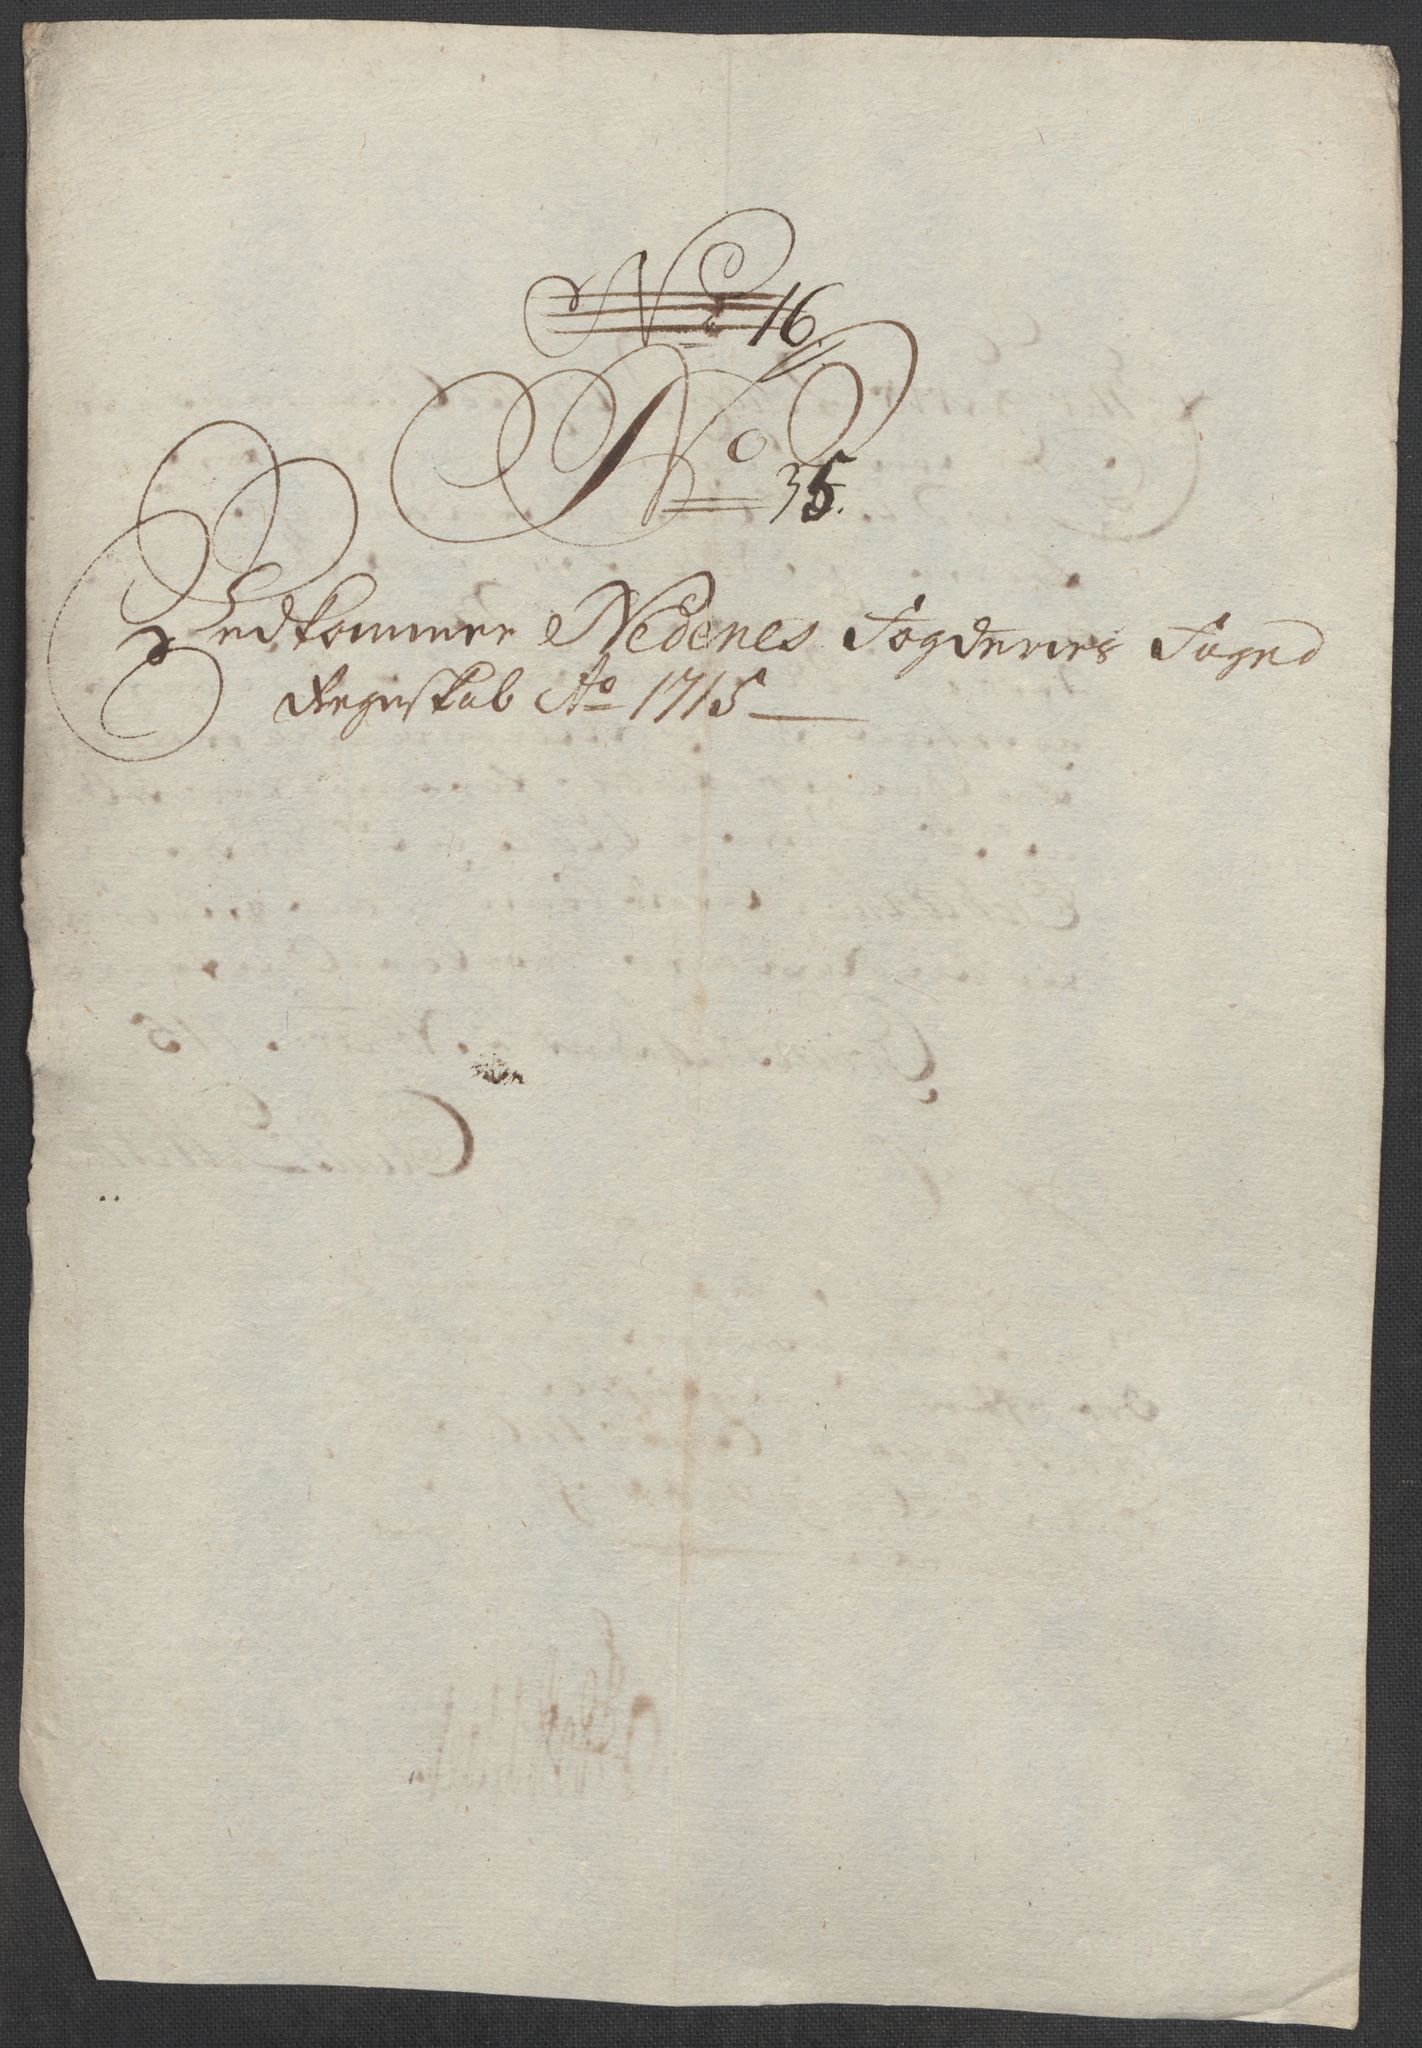 No 16
No 35.
Vedkommer Nedenes Fogderies Foged
Regnskab Ao 1715